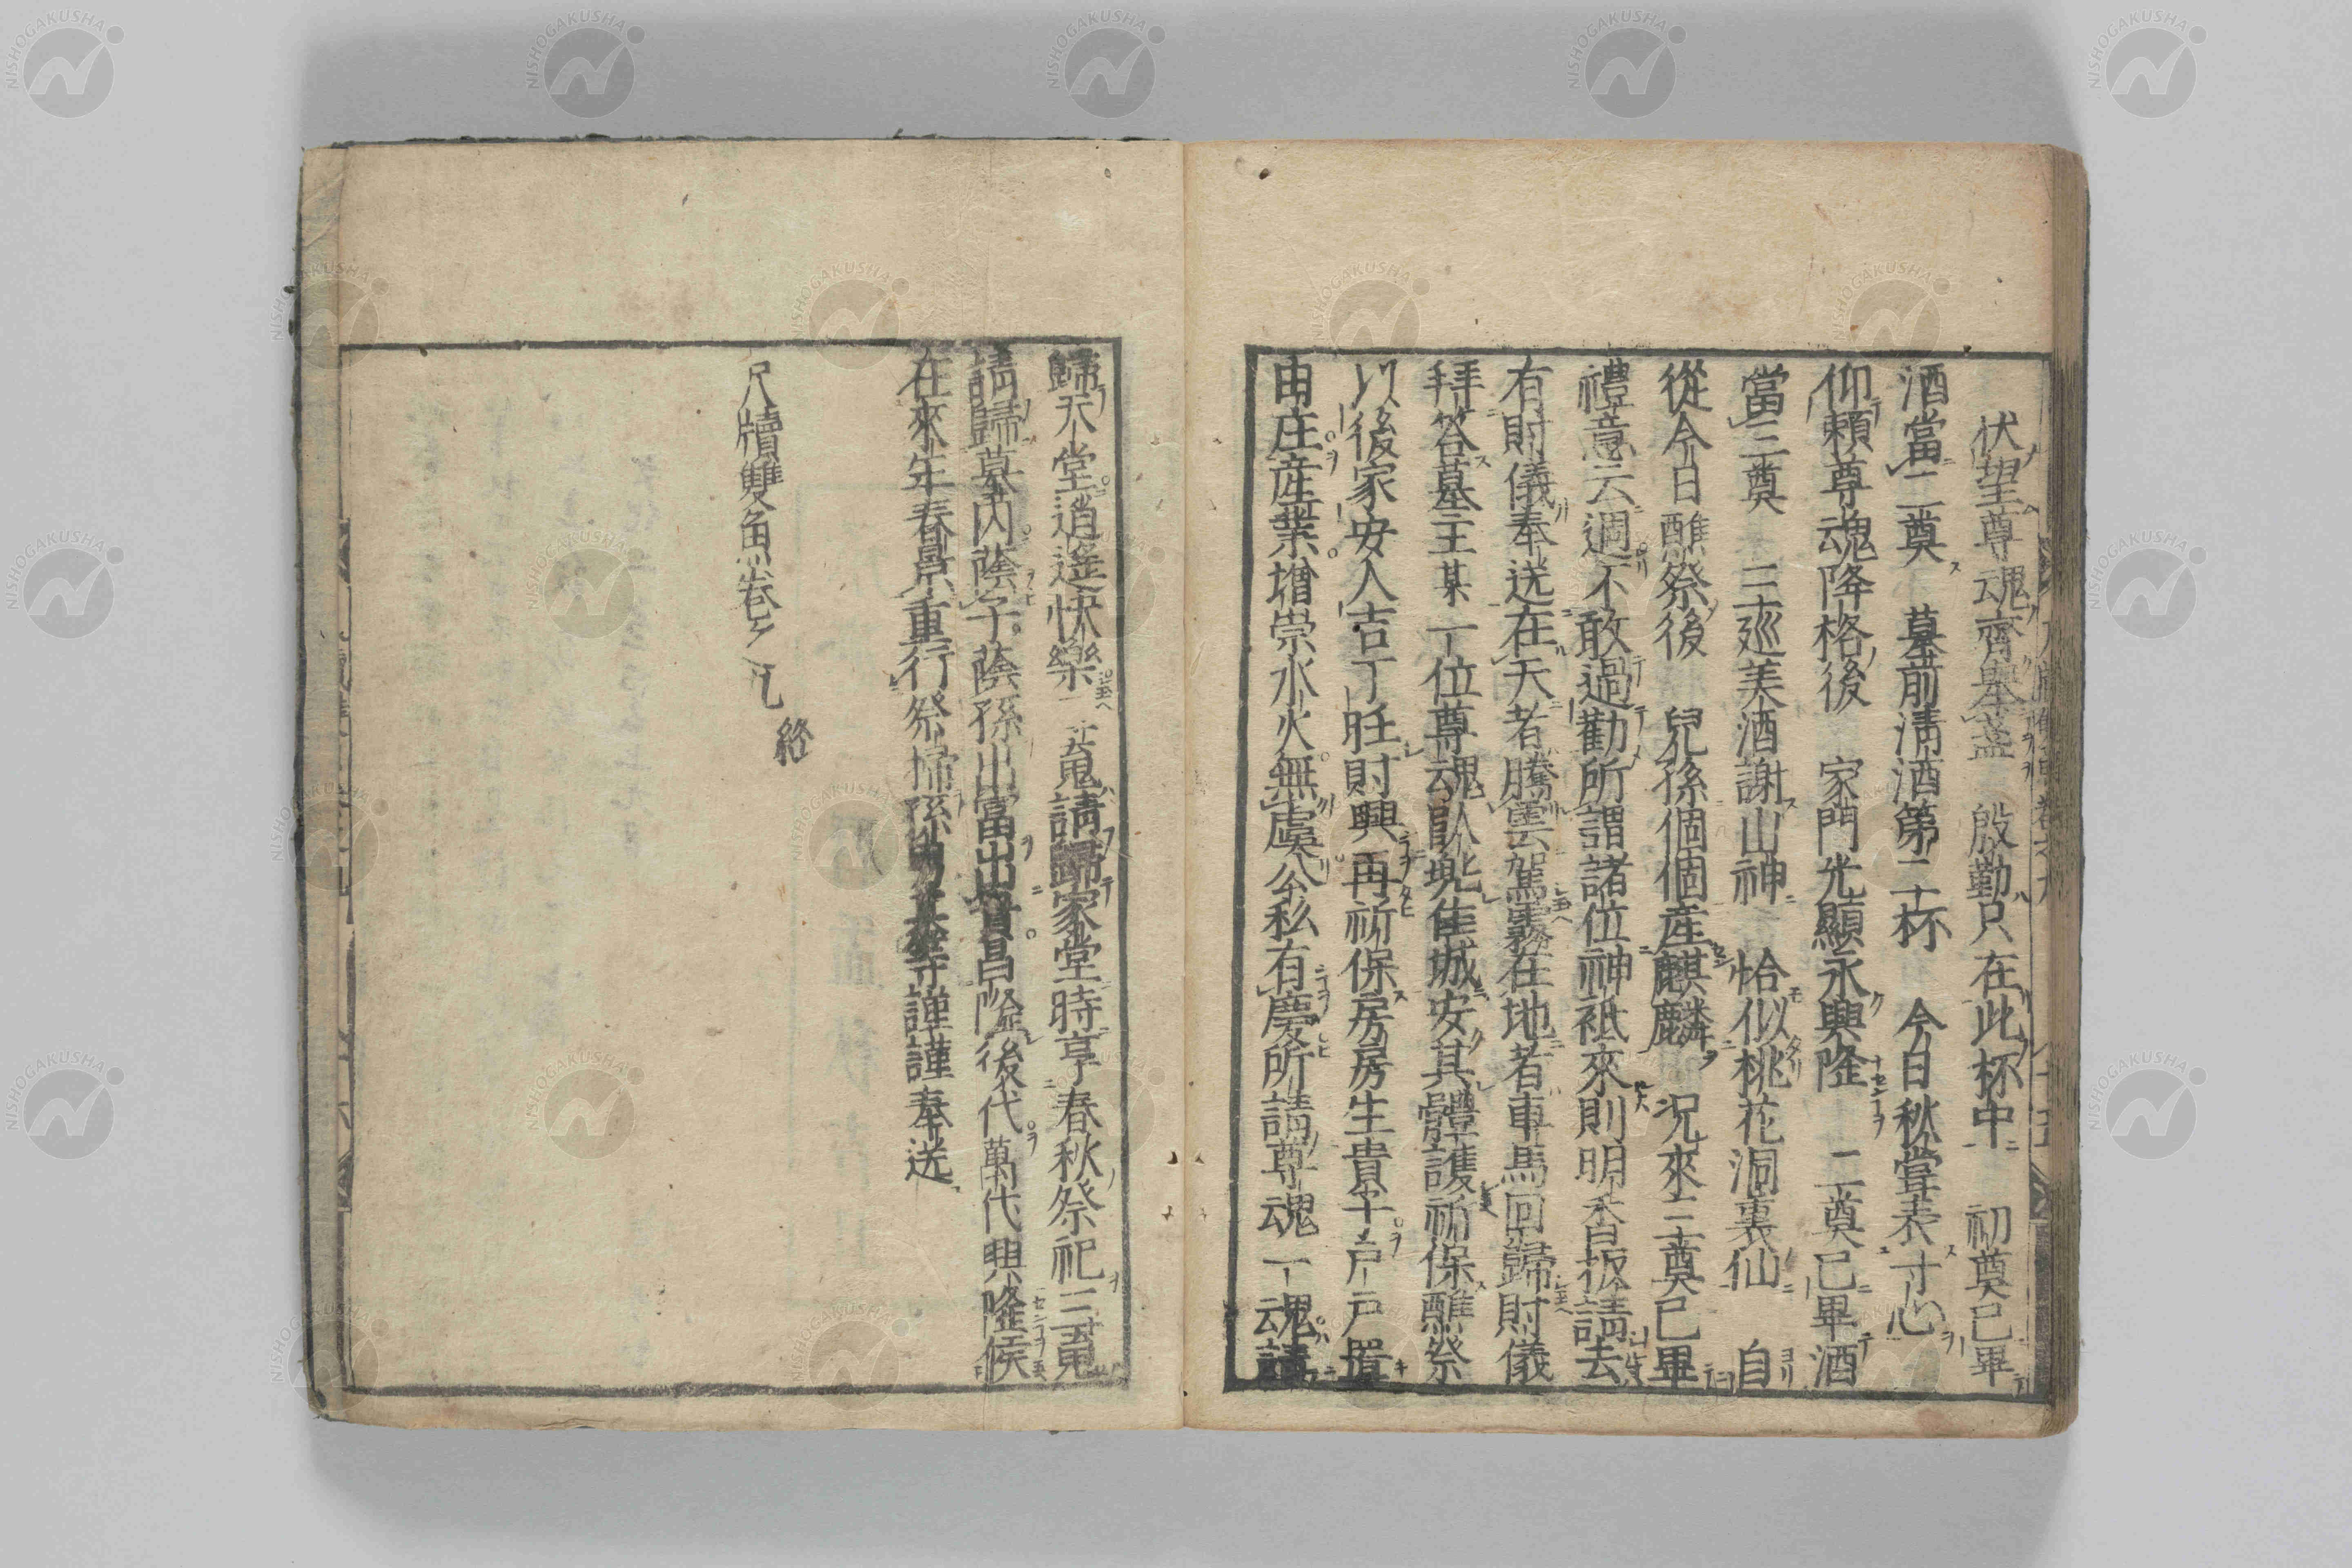 伏望尊魂齊舉盞　殷勤只在此杯中　初奠已畢
酒當二奠　墓前清酒第二杯　今日秋嘗表寸心
仰賴尊魂降格後　家門光顯永興隆　二奠已畢酒
當三奠　三巡美酒謝山神　恰似桃花洞裏仙　自
從今日醮祭後　兒孫個個産麒麟　況來三奠已畢
禮意云週不敢過勸所謂諸位神祇來則明香拔請去
有財儀奉送在天者騰雲駕霧在地者車馬回歸財儀
拜答墓主某一位尊魂歆兠佳城安其體護祈保醮祭
以後家安人吉丁旺財興再祈保房房生貴子戶戶置
由庄産業增崇水火無虞公私有慶所請尊魂一魂請
歸天堂逍遙快樂一魂請歸家堂時享春秋祭祀三魂
請歸墓內蔭子蔭孫出富出貴昌隆後代萬代興隆候
在來年春景重行祭掃孫某等謹謹奉送
尺牘雙魚卷之九
終
NISHOGAKUSHA